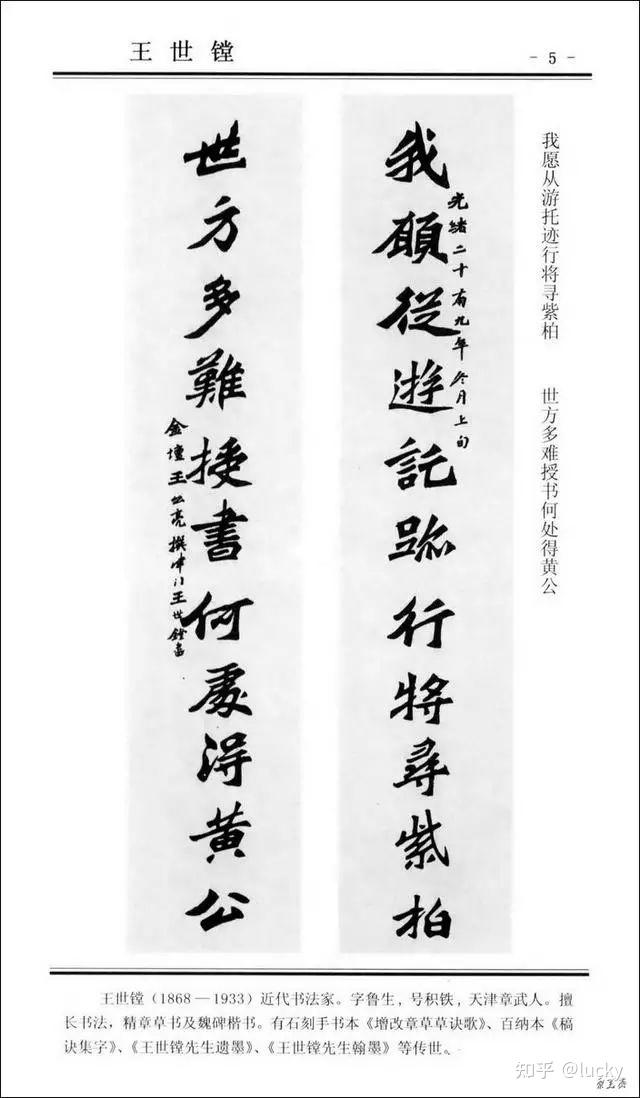 王世镗
- 5 -
我愿从游托迹行将寻紫柏　世方多难授书何处得黄公
我願從遊託跡行將尋紫柏
光緒二十有九年冬月上旬
世方多難授書何處得黃公
金壇王 亮撰 王世鏜書
王世镗（1868—1933）近代书法家。字鲁生，号积铁，天津章武人。擅
长书法，精章草书及魏碑楷书。有石刻手书本《增改章草草诀歌》、百纳本《稿
诀集字》、《王世镗先生遗墨》、《王世镗先生翰墨》等传世。
知乎 @lucky